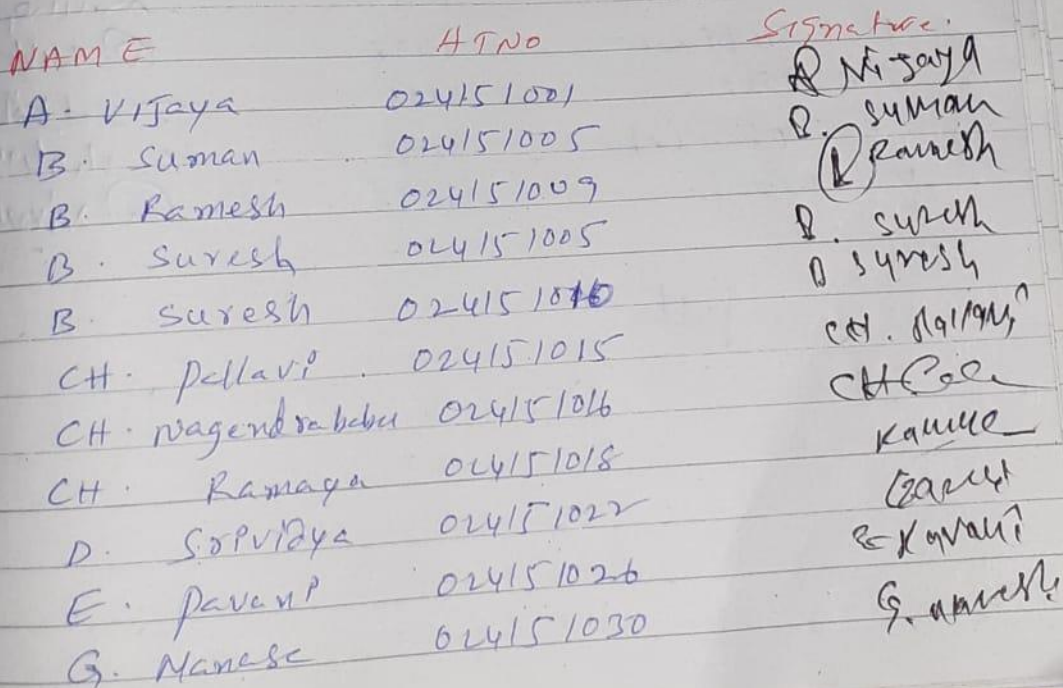 NAME HTNO Signature.
A. Vijaya 024151001 A Vijaya
B. Suman 024151005 B. Suman
B. Ramesh 024151009 Ramesh
B. Suresh 024151005 B. Suresh
B. Suresh 024151010 B Suresh
CH. Pallavi 024151015 CH.
CH. Nagendrababu 024151016 CH
CH. Ramaya 024151018
D. Srividya 024151022
E. Pavani 024151026
G. Manasa 024151030 G.